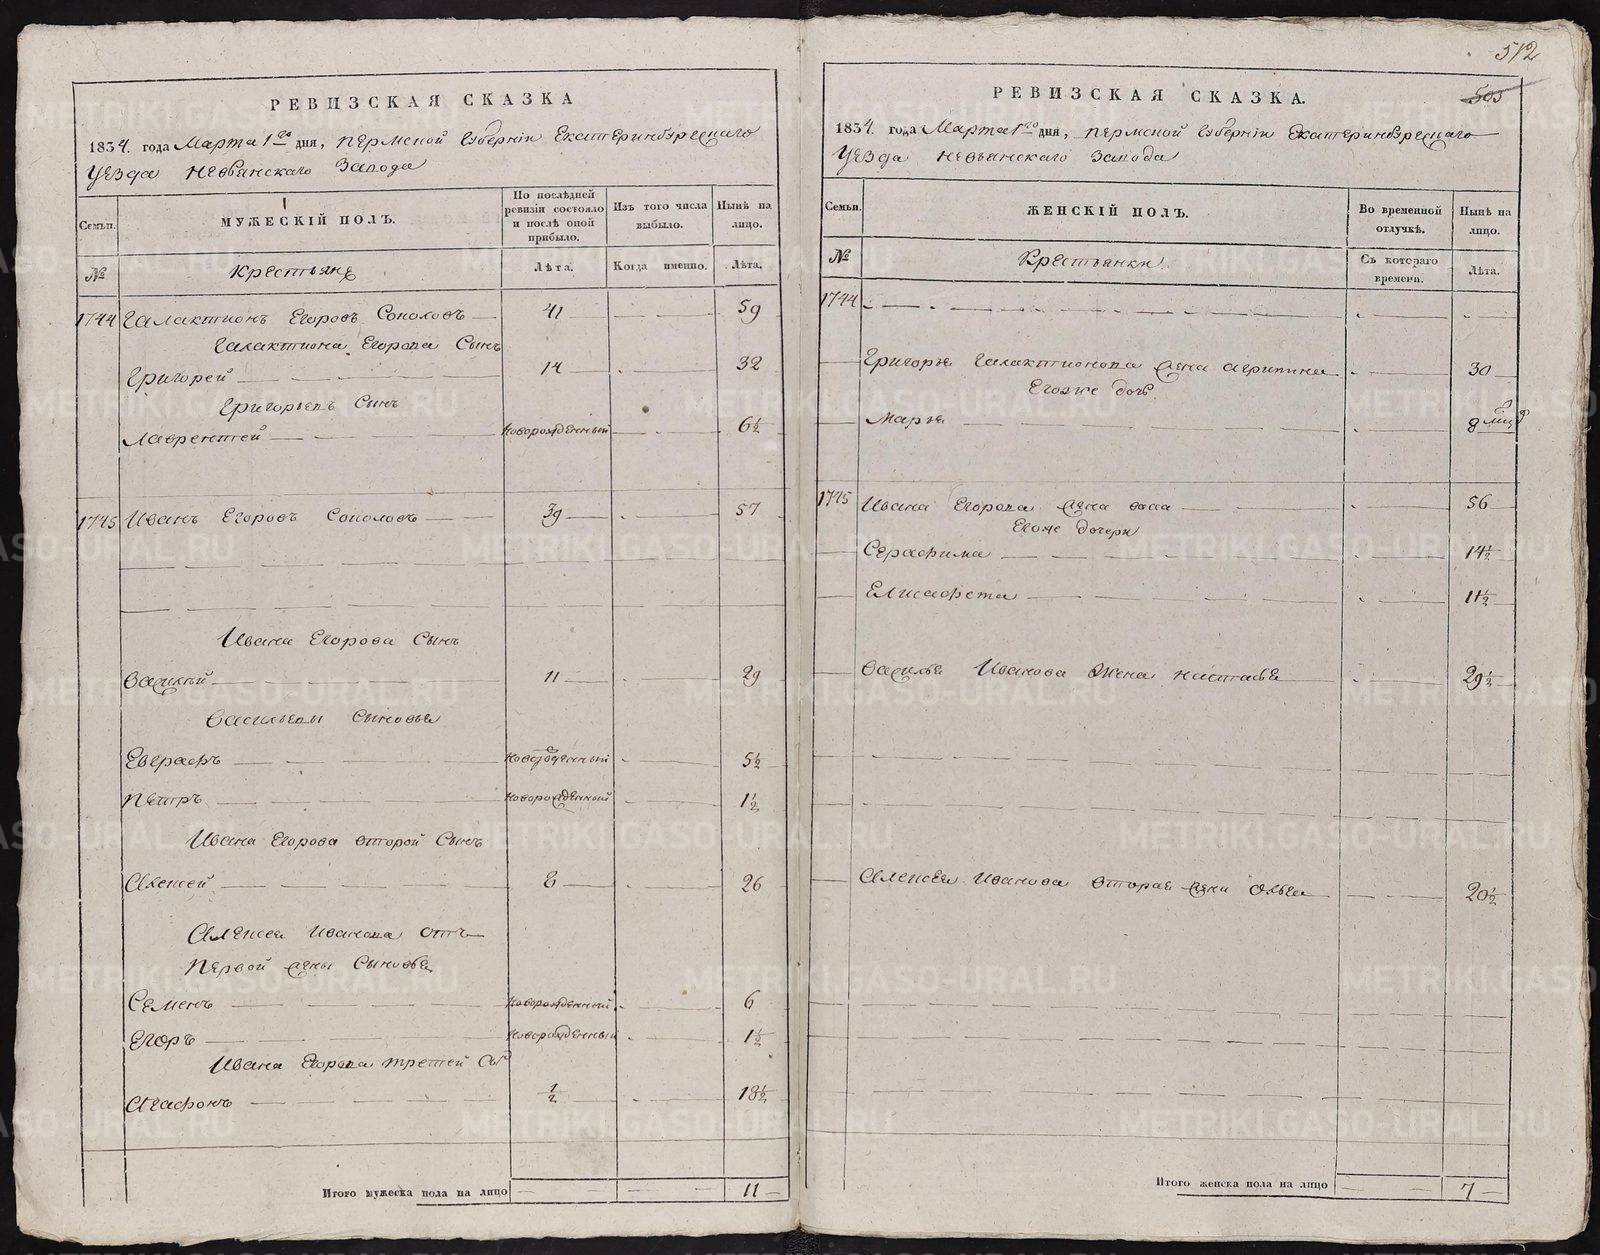 РЕВИЗСКАЯ СКАЗКА
1834. года Марта 1го дня, Пермской Губернiи Екатеринбургскаго
Уезда Невьянскаго Завода
Семьи.
МУЖЕСКIЙ ПОЛЪ.
По послѣдней ревизiи состояло и послѣ оной прибыло.
Изъ того числа выбыло.
Нынѣ на лицо.
№
Крестьяне
Лѣта.
Когда именно.
Лѣта.
1744 Галактионъ Егоровъ Соколовъ 41 59
Галактиона Егорова Сынъ
Григорей 14 32
Григорьевъ Сынъ
Лаврентей новорожденный 6½
1745 Иванъ Егоровъ Соколовъ 39 57
Ивана Егорова Сынъ
Василий 11 29
Васильевы Сыновья
Евграфъ новорожденный 5½
Петръ новорожденный 1½
Ивана Егорова второй Сынъ
Алексей 8 26
Алексея Иванова отъ
Первой жены Сыновья
Семенъ новорожденный 6
Егоръ новорожденный 1½
Ивана Егорова третей Сынъ
Агафонъ ½ 18½
Итого мужеска пола на лицо 11
512
505
РЕВИЗСКАЯ СКАЗКА.
1834. года Марта 1го дня, Пермской Губернiи Екатеринбургскаго
Уезда Невьянскаго Завода
Семьи.
ЖЕНСКIЙ ПОЛЪ.
Во временной отлучкѣ.
Нынѣ на лицо.
№
Крестьянки
Съ котораго времени.
Лѣта.
1744
Григорья Галактионова жена Агрипина 30
Егоже дочь
Марья 8 мцд
1745 Ивана Егорова жена Васа 56
Егоже дочери
Серафима 14½
Елисафета 11½
Василья Иванова жена Настасья 29½
Алексея Иванова вторая жена Ольга 20½
Итого женска пола на лицо 7
METRIKI.GASO-URAL.RU